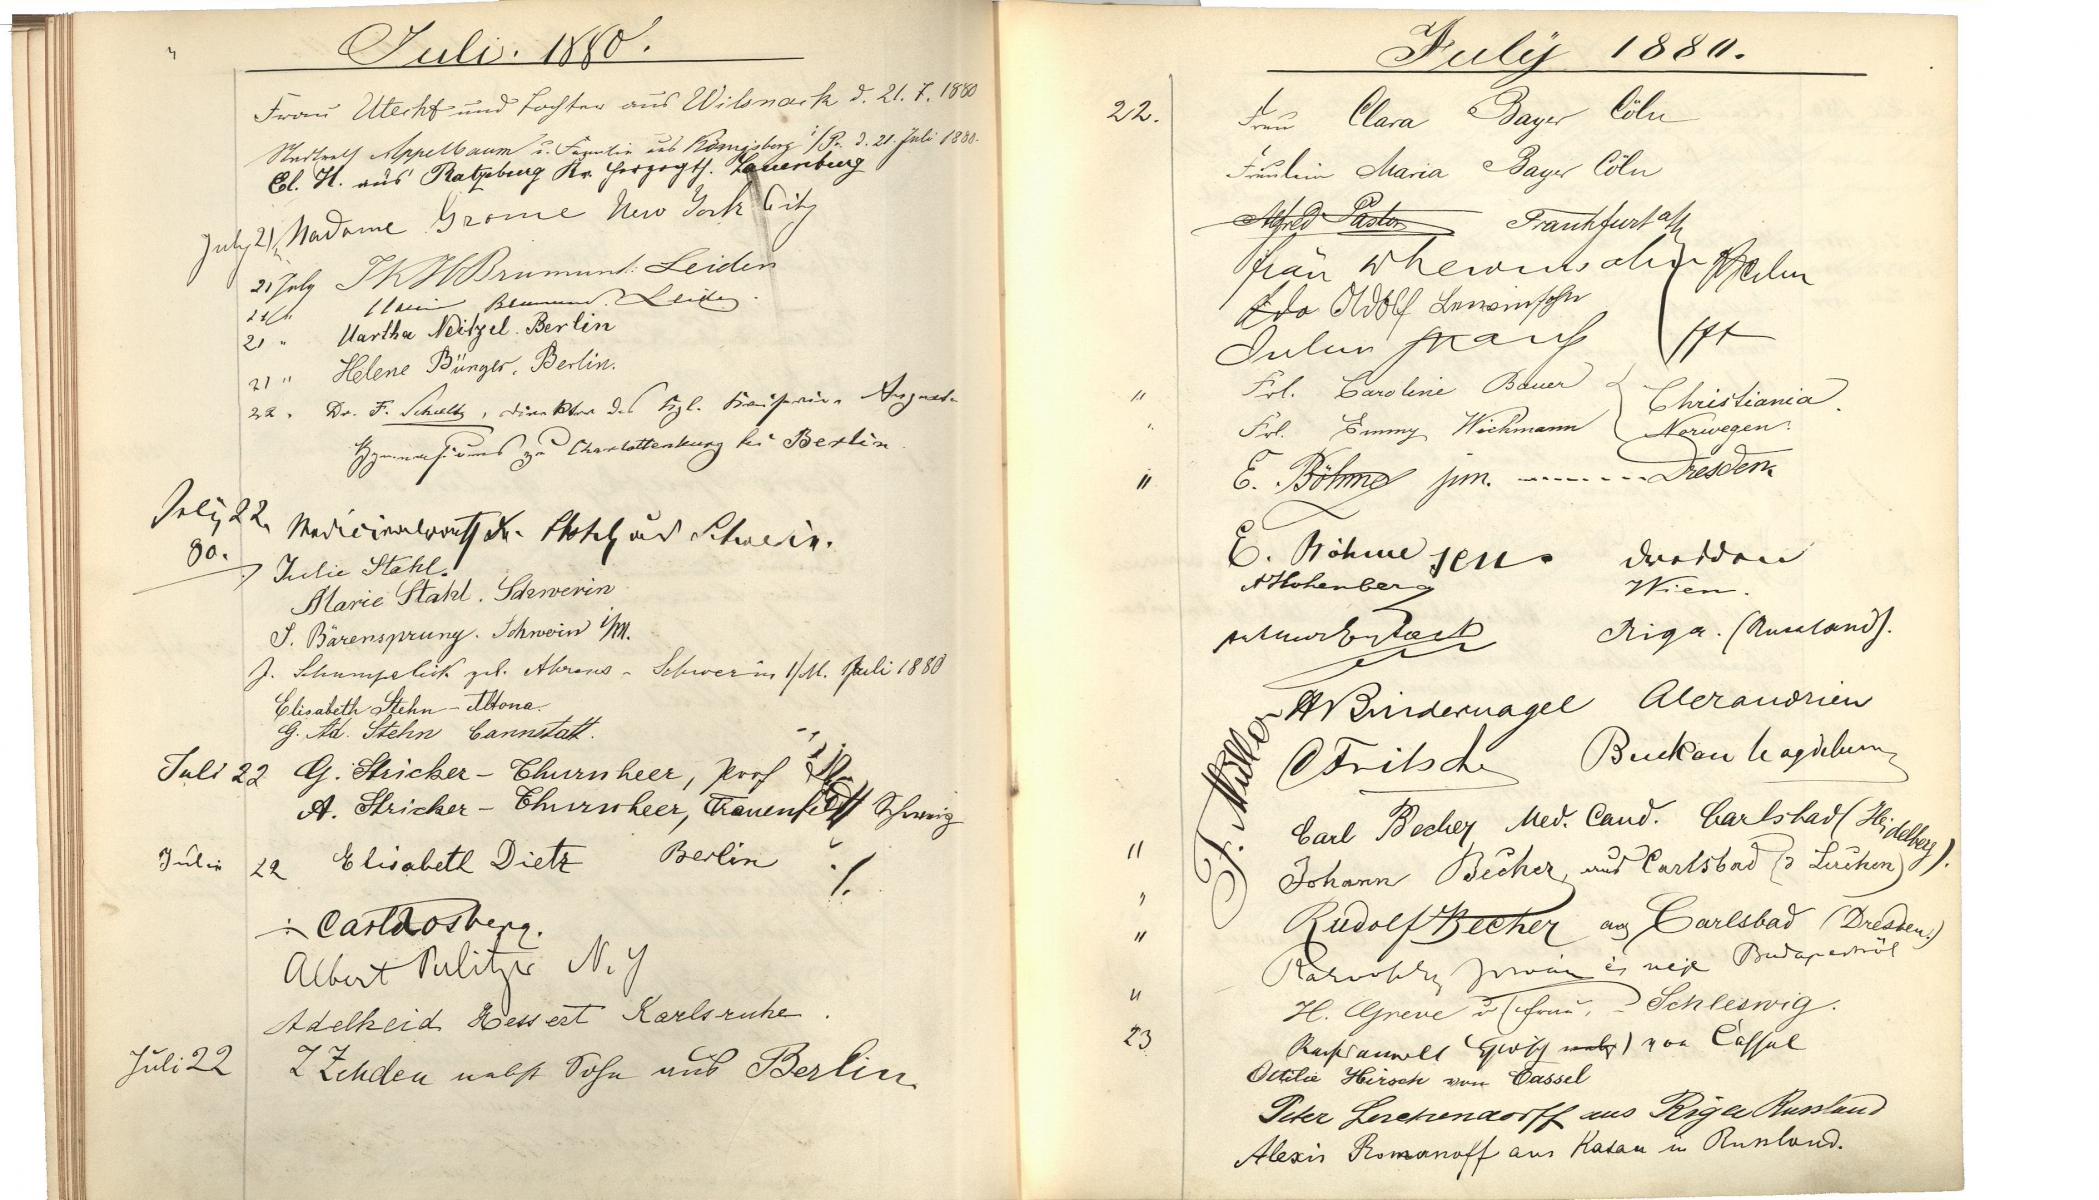 Juli. 1880.
Frau Utecht und Tochter aus Wilsnack d. 21. 7. 1880
Stadtrath Appelbaum u. Familie aus Königsberg i/Pr. d. 21. Juli 1880.
El. H. aus Ratzeburg Kr. Herzogth. Lauenburg
July 21 Madame Grome New York City
21 July Brumund. Leiden
21 " Brumund. Leiden.
21 " Martha Neitzel. Berlin
21 " Helene Bünger, Berlin.
22 " Dr. F. Schultz, Direktor des Kgl. Kaiserin Augusta
Gymnasiums zu Charlottenburg bei Berlin.
July 22. Medicinalrath Dr. Stahl aus Schwerin.
80. Julie Stahl.
Marie Stahl. Schwerin
S. Bärensprung. Schwerin i/M.
J. Schumpelick geb. Ahrens - Schwerin i/M. Juli 1880
Elisabeth Stehn - Altona.
G. Ad. Stehn Cannstatt.
Juli 22 G. Stricker - Thurnheer, prof
A. Stricker - Thurnheer, Frauenfeld Schweiz
Juli 22 Elisabeth Dietz Berlin
Carl Rosberg.
Albert Pulitzer N. Y
Adelheid Hessert Karlsruhe.
Juli 22 Z Zehden nebst Sohn aus Berlin.
July 1880.
22. Frau Clara Bayer Cöln
Fräulein Maria Bayer Cöln
Alfred Pastor Frankfurt a/M
Adolf Lewinsohn
" Frl. Caroline Bauer Christiania.
" Frl. Emmy Wichmann Norwegen.
" E. Böhme jun. -------- Dresden
E. Böhme sen. Dresden
A Hohenberg Wien.
Riga. (Russland).
F. Müller
H Bindernagel Alexandrien
C Fritsche Buckau Magdeburg
" Carl Becher Med. Cand. Carlsbad (Heidelberg).
" Johann Becher, aus Carlsbad
" Rudolf Becher aus Carlsbad (Dresden.)
és neje Budapestről
" H. Greve u Frau, - Schleswig.
23 Rechtsanwalt von Cassel
Ottilie Hirsch von Cassel
Peter Lerchendorff aus Riga Russland
Alexis Romanoff aus Kasan in Russland.